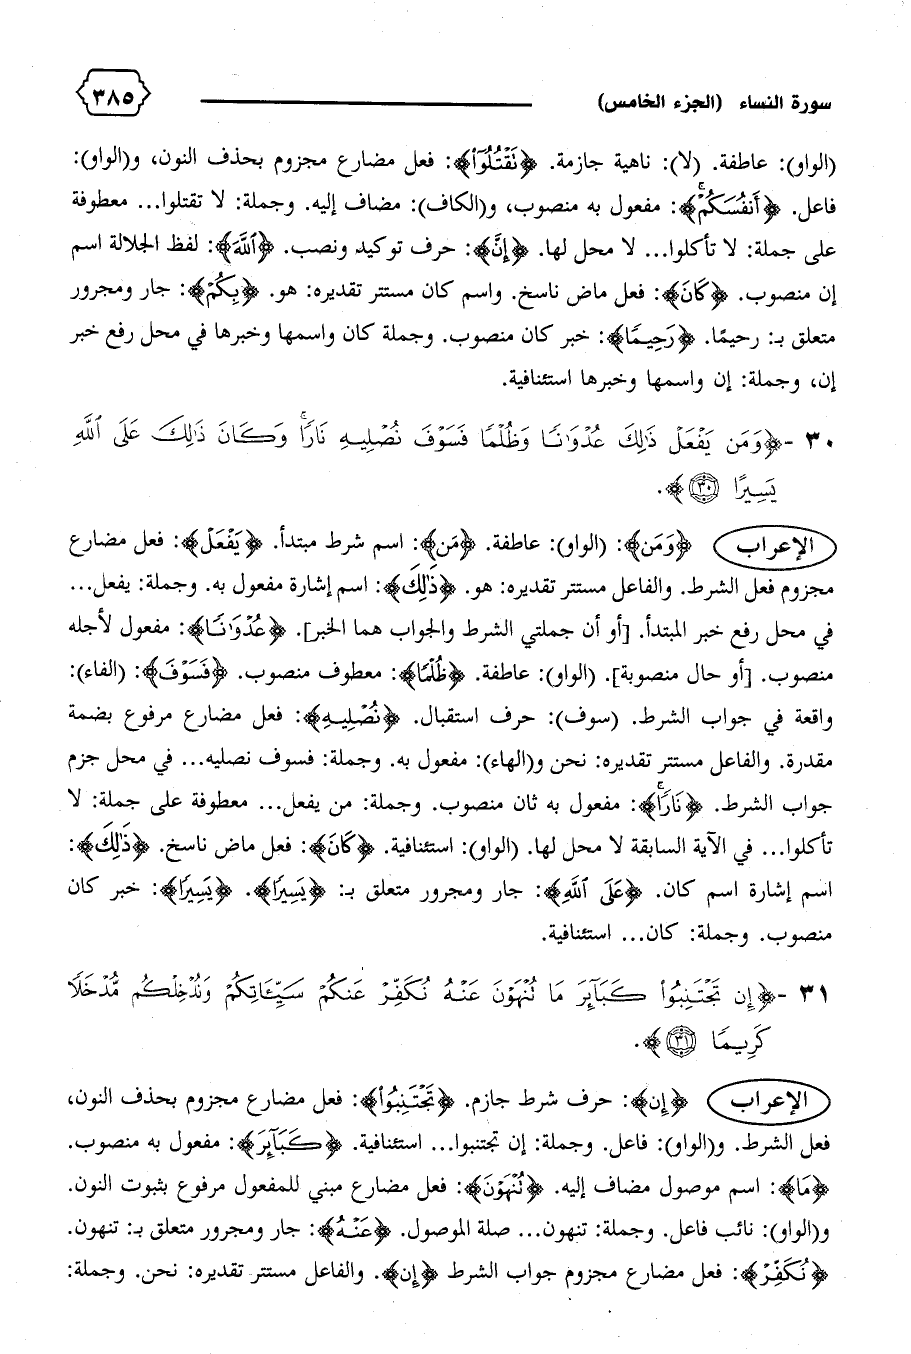 سورة النساء (الجزء الخامس) ٣٨٥
(الواو): عاطفة. (لا): ناهية جازمة. ﴿نَقْتُلُوٓا۟﴾: فعل مضارع مجزوم بحذف النون، و(الواو):
فاعل. ﴿أَنفُسَكُمْ ۚ﴾: مفعول به منصوب، و(الكاف): مضاف إليه. وجملة: لا تقتلوا... معطوفة
على جملة: لا تأكلوا... لا محل لها. ﴿إِنَّ﴾: حرف توكيد ونصب. ﴿ٱللَّهَ﴾: لفظ الجلالة اسم
إن منصوب. ﴿كَانَ﴾: فعل ماض ناسخ. واسم كان مستتر تقديره: هو. ﴿بِكُمْ﴾: جار ومجرور
متعلق بـ: رحيمًا. ﴿رَحِيمًا﴾: خبر كان منصوب. وجملة كان واسمها وخبرها في محل رفع خبر
إن، وجملة: إن واسمها وخبرها استئنافية.
٣٠ -﴿وَمَن يَفْعَلْ ذَٰلِكَ عُدْوَٰنًا وَظُلْمًا فَسَوْفَ نُصْلِيهِ نَارًا ۚ وَكَانَ ذَٰلِكَ عَلَى ٱللَّهِ
يَسِيرًا ﴿٣٠﴾﴾.
الإعراب ﴿وَمَن﴾: (الواو): عاطفة. ﴿مَن﴾: اسم شرط مبتدأ. ﴿يَفْعَلْ﴾: فعل مضارع
مجزوم فعل الشرط. والفاعل مستتر تقديره: هو. ﴿ذَٰلِكَ﴾: اسم إشارة مفعول به. وجملة: يفعل...
في محل رفع خبر المبتدأ. [أو أن جملتي الشرط والجواب هما الخبر]. ﴿عُدْوَٰنًا﴾: مفعول لأجله
منصوب. [أو حال منصوبة]. (الواو): عاطفة. ﴿ظُلْمًا﴾: معطوف منصوب. ﴿فَسَوْفَ﴾: (الفاء):
واقعة في جواب الشرط. (سوف): حرف استقبال. ﴿نُصْلِيهِ﴾: فعل مضارع مرفوع بضمة
مقدرة. والفاعل مستتر تقديره: نحن و(الهاء): مفعول به. وجملة: فسوف نصليه... في محل جزم
جواب الشرط. ﴿نَارًا ۚ﴾: مفعول به ثان منصوب. وجملة: من يفعل... معطوفة على جملة: لا
تأكلوا... في الآية السابقة لا محل لها. (الواو): استئنافية. ﴿كَانَ﴾: فعل ماض ناسخ. ﴿ذَٰلِكَ﴾:
اسم إشارة اسم كان. ﴿عَلَى ٱللَّهِ﴾: جار ومجرور متعلق بـ: ﴿يَسِيرًا﴾. ﴿يَسِيرًا﴾: خبر كان
منصوب. وجملة: كان... استئنافية.
٣١ -﴿إِن تَجْتَنِبُوا۟ كَبَآئِرَ مَا تُنْهَوْنَ عَنْهُ نُكَفِّرْ عَنكُمْ سَيِّـَٔاتِكُمْ وَنُدْخِلْكُم مُّدْخَلًا
كَرِيمًا ﴿٣١﴾﴾.
الإعراب ﴿إِن﴾: حرف شرط جازم. ﴿تَجْتَنِبُوا۟﴾: فعل مضارع مجزوم بحذف النون،
فعل الشرط. و(الواو): فاعل. وجملة: إن تجتنبوا... استئنافية. ﴿كَبَآئِرَ﴾: مفعول به منصوب.
﴿مَا﴾: اسم موصول مضاف إليه. ﴿تُنْهَوْنَ﴾: فعل مضارع مبني للمفعول مرفوع بثبوت النون.
و(الواو): نائب فاعل. وجملة: تنهون... صلة الموصول. ﴿عَنْهُ﴾: جار ومجرور متعلق بـ: تنهون.
﴿نُكَفِّرْ﴾: فعل مضارع مجزوم جواب الشرط ﴿إِن﴾. والفاعل مستتر تقديره: نحن. وجملة: